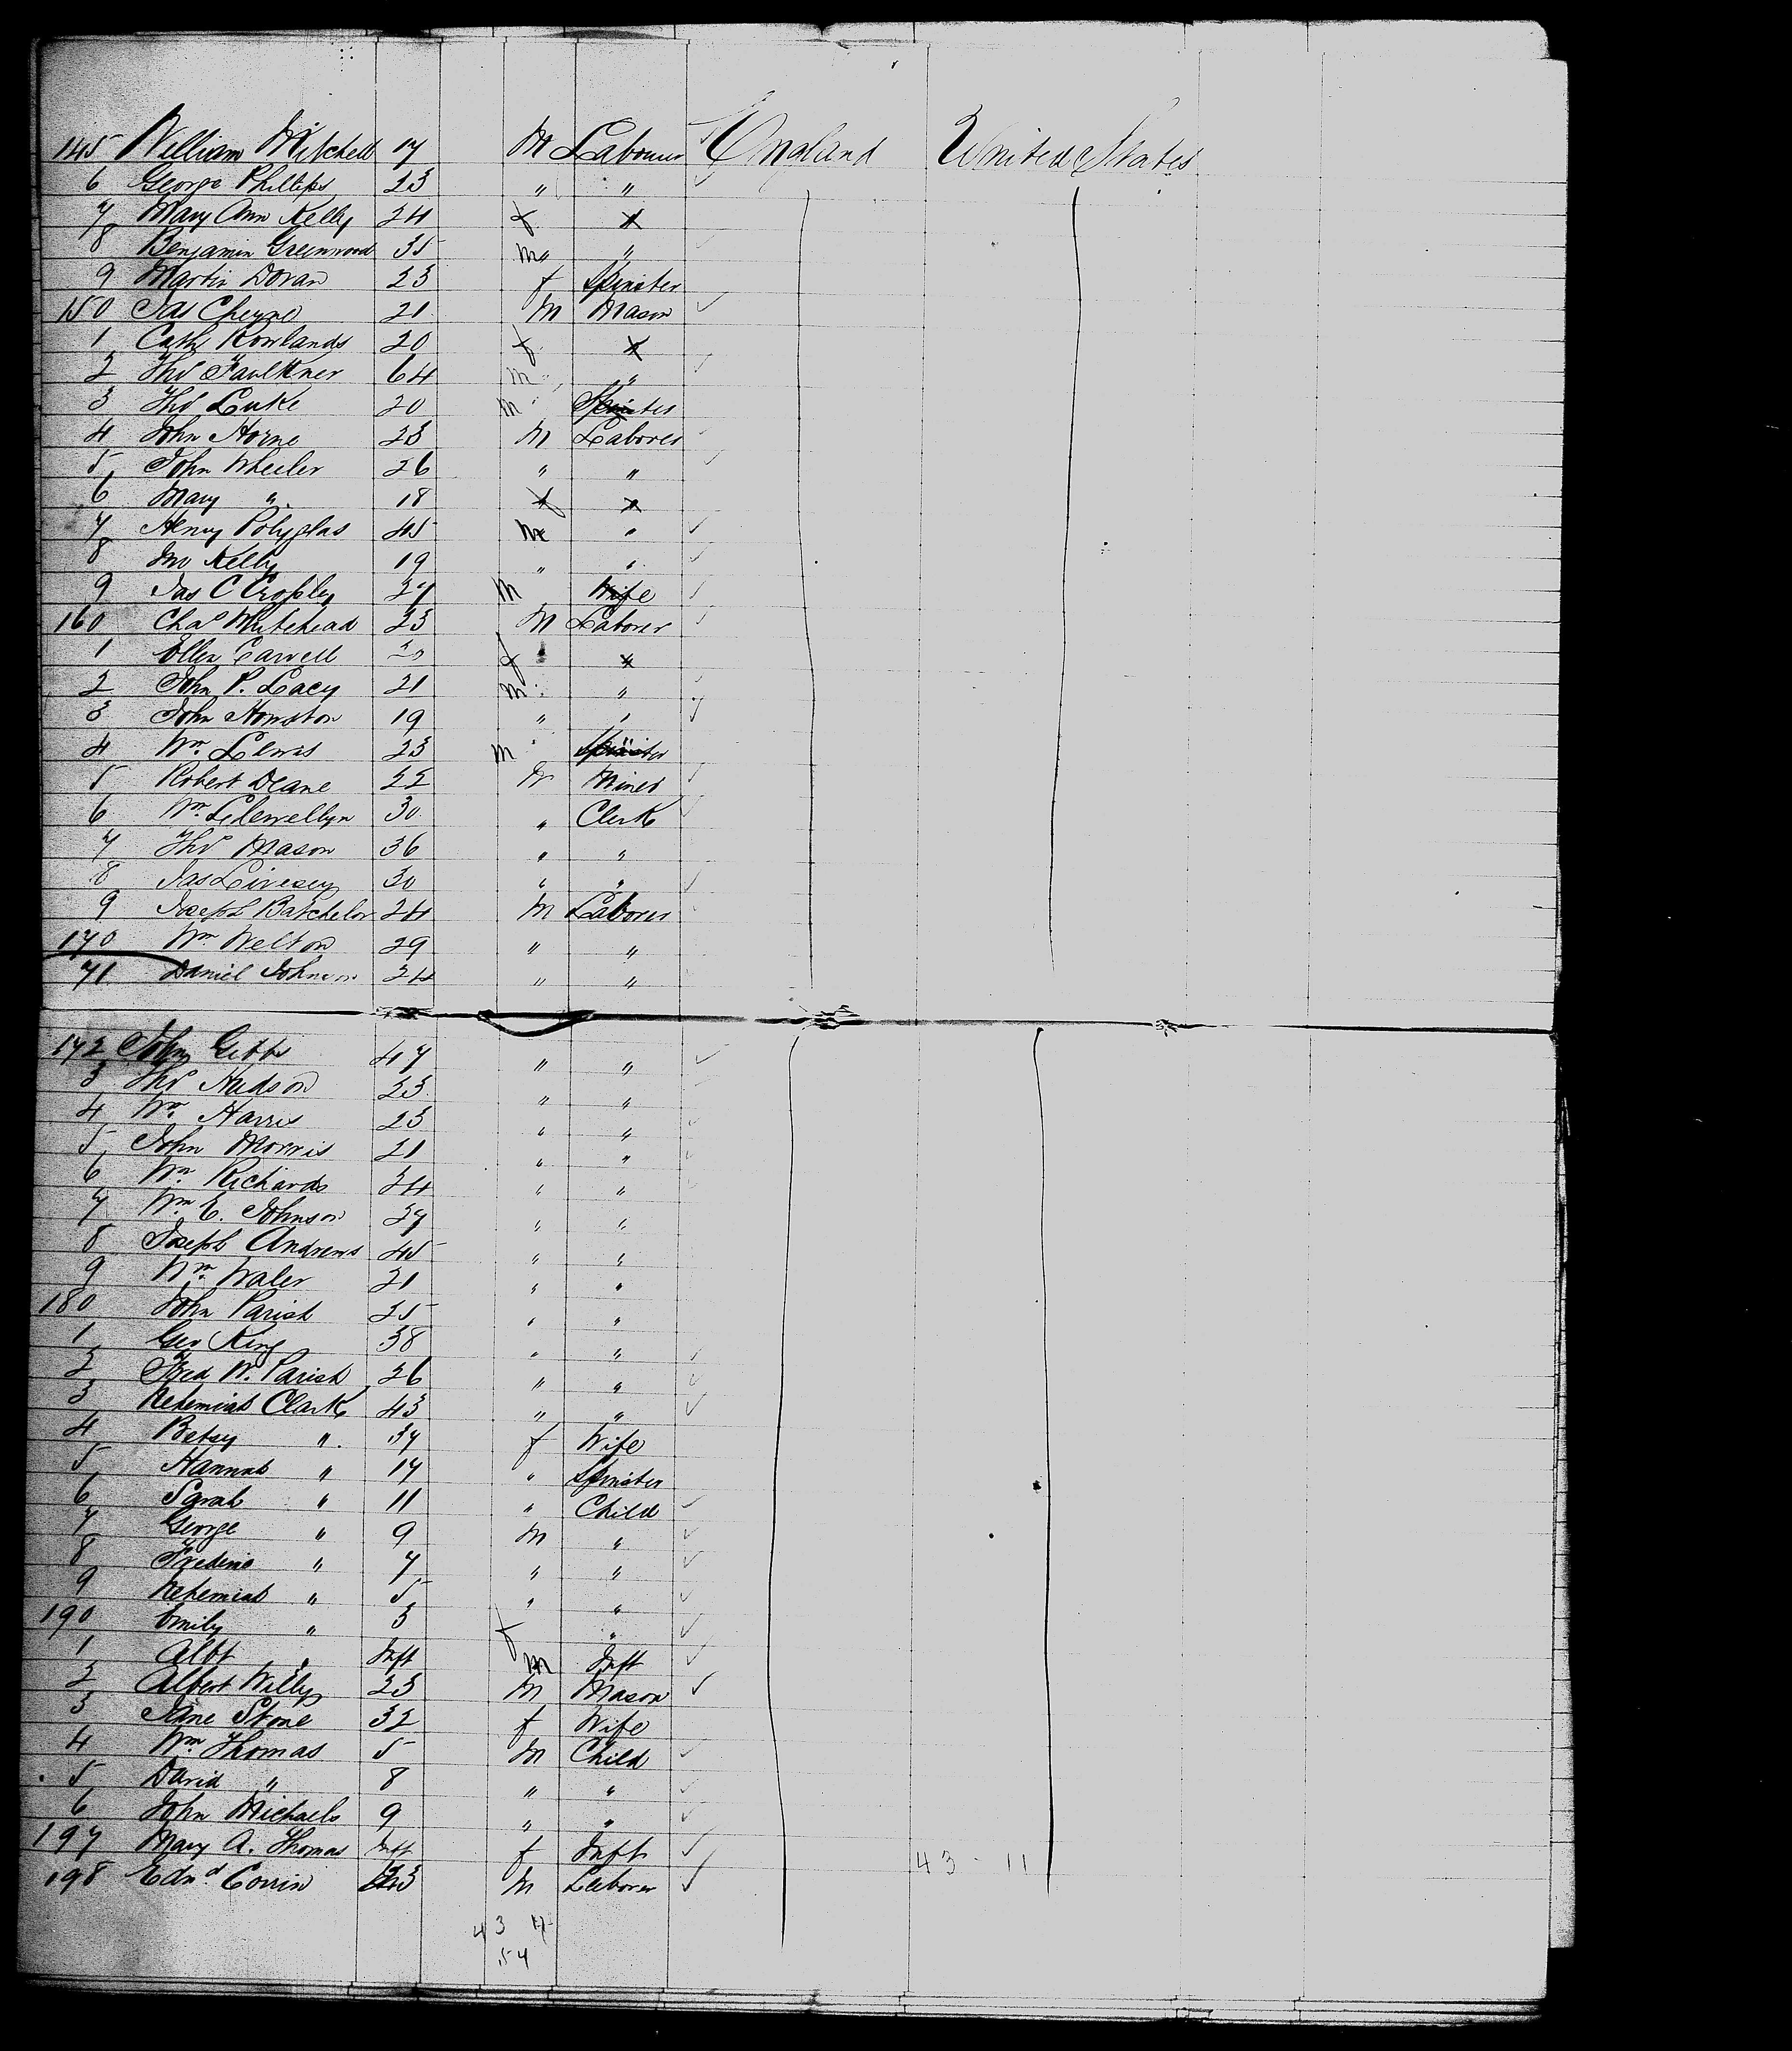 145 William Mitchell 17 M Labourer England United States
6 George Phillips 23 " "
7 Mary Ann Kelly 24 f
8 Benjamin Greenwood 35 m " "
9 Martin Doran 23 f Spinster
150 Jas Cheyne 21 M Mason
1 Cath Rowlands 20 f
2 Thos Faulkner 64 m " "
3 Thos Luke 20 m Spinster
4 John Horne 23 M Laborer
5 John Wheeler 26 " "
6 Mary " 18 f
7 Henry Polyglas 45 M "
8 Jno Kelly 19 " "
9 Jas C Cropley 27 M Wife
160 Chas Whitehead 23 M Laborer
1 Ellen Carvell f
2 John P. Lacy 21 m "
3 John Howston 19 " "
4 Wm. Lewis 23 m Spinster
5 Robert Deane 22 M Miner
6 Wm. Llewellyn 30 " Clerk
7 Thos Mason 36 " "
8 Jas Livesey 30 " "
9 Joseph Batchelor 24 M Laborer
170 Wm Welton 29 " "
71 Daniel Johnson 24 " "
172 John Gibbs 47 " "
3 Thos Hudson 23 " "
4 Wm. Harris 23 " "
5 John Morris 21 " "
6 Wm. Richards 24 " "
7 Wm. E. Johnson 27 " "
8 Joseph Andrews 45 " "
9 Wm. Waler 21 " "
180 John Parish 25 " "
1 Geo King 38 " "
2 Fred W. Parish 26 " "
3 Nehemiah Clark 43 " "
4 Betsy " 37 f Wife
5 Hannah " 17 " Spinster
6 Sarah " 11 " Child
7 George " 9 M "
8 Frederic " 7 " "
9 Nehemiah " 5 " "
190 Emily " 3 f "
1 Albt " Inft m Inft
2 Albert Willy 23 M Mason
3 Jane Stone 32 f Wife
4 Wm Thomas 5 M Child
5 David " 8 " "
6 John Michaels 9 " "
197 Mary A. Thomas Inft f Inft
198 Ednd Corrin M Laborer
43 - 11
43 11
54